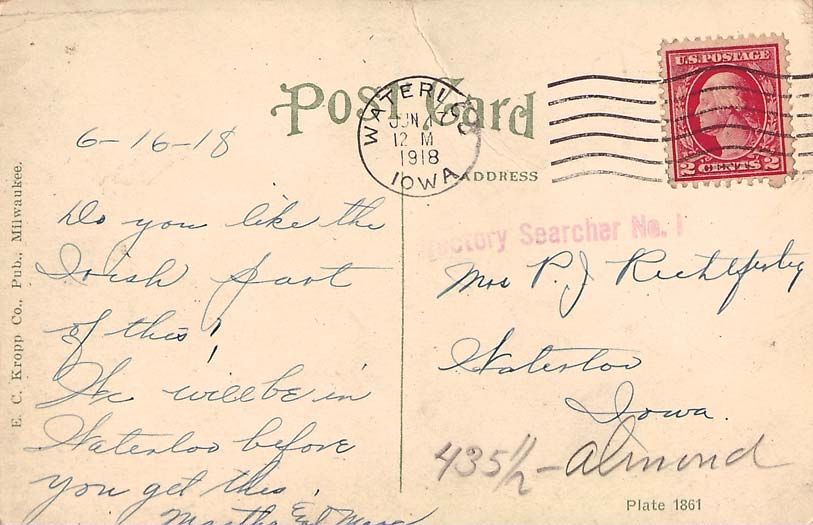 Post Card
WATERLOO
JUN 17
12 M
1918
IOWA
ADDRESS
U.S. POSTAGE
2 CENTS 2
6-16-18
Do you like the
Irish part
of this!
We will be in
Waterloo before
you get this.
Martha Ed
Directory Searcher No. 1
Mrs P. J.
Waterloo
Iowa.
435 1/2 - Almond
Plate 1861
E. C. Kropp Co., Pub., Milwaukee.